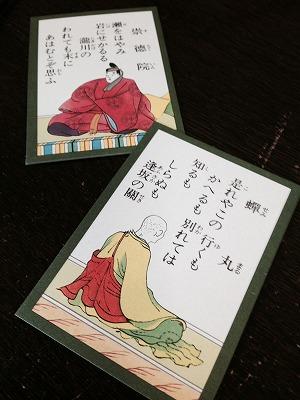 崇徳院
瀬をはやみ
岩にせかるる
瀧川の
われても末に
あはむとぞ思ふ
蟬丸
是れやこの 行くも
かへるも 別れては
知るも
しらぬも
逢坂の關